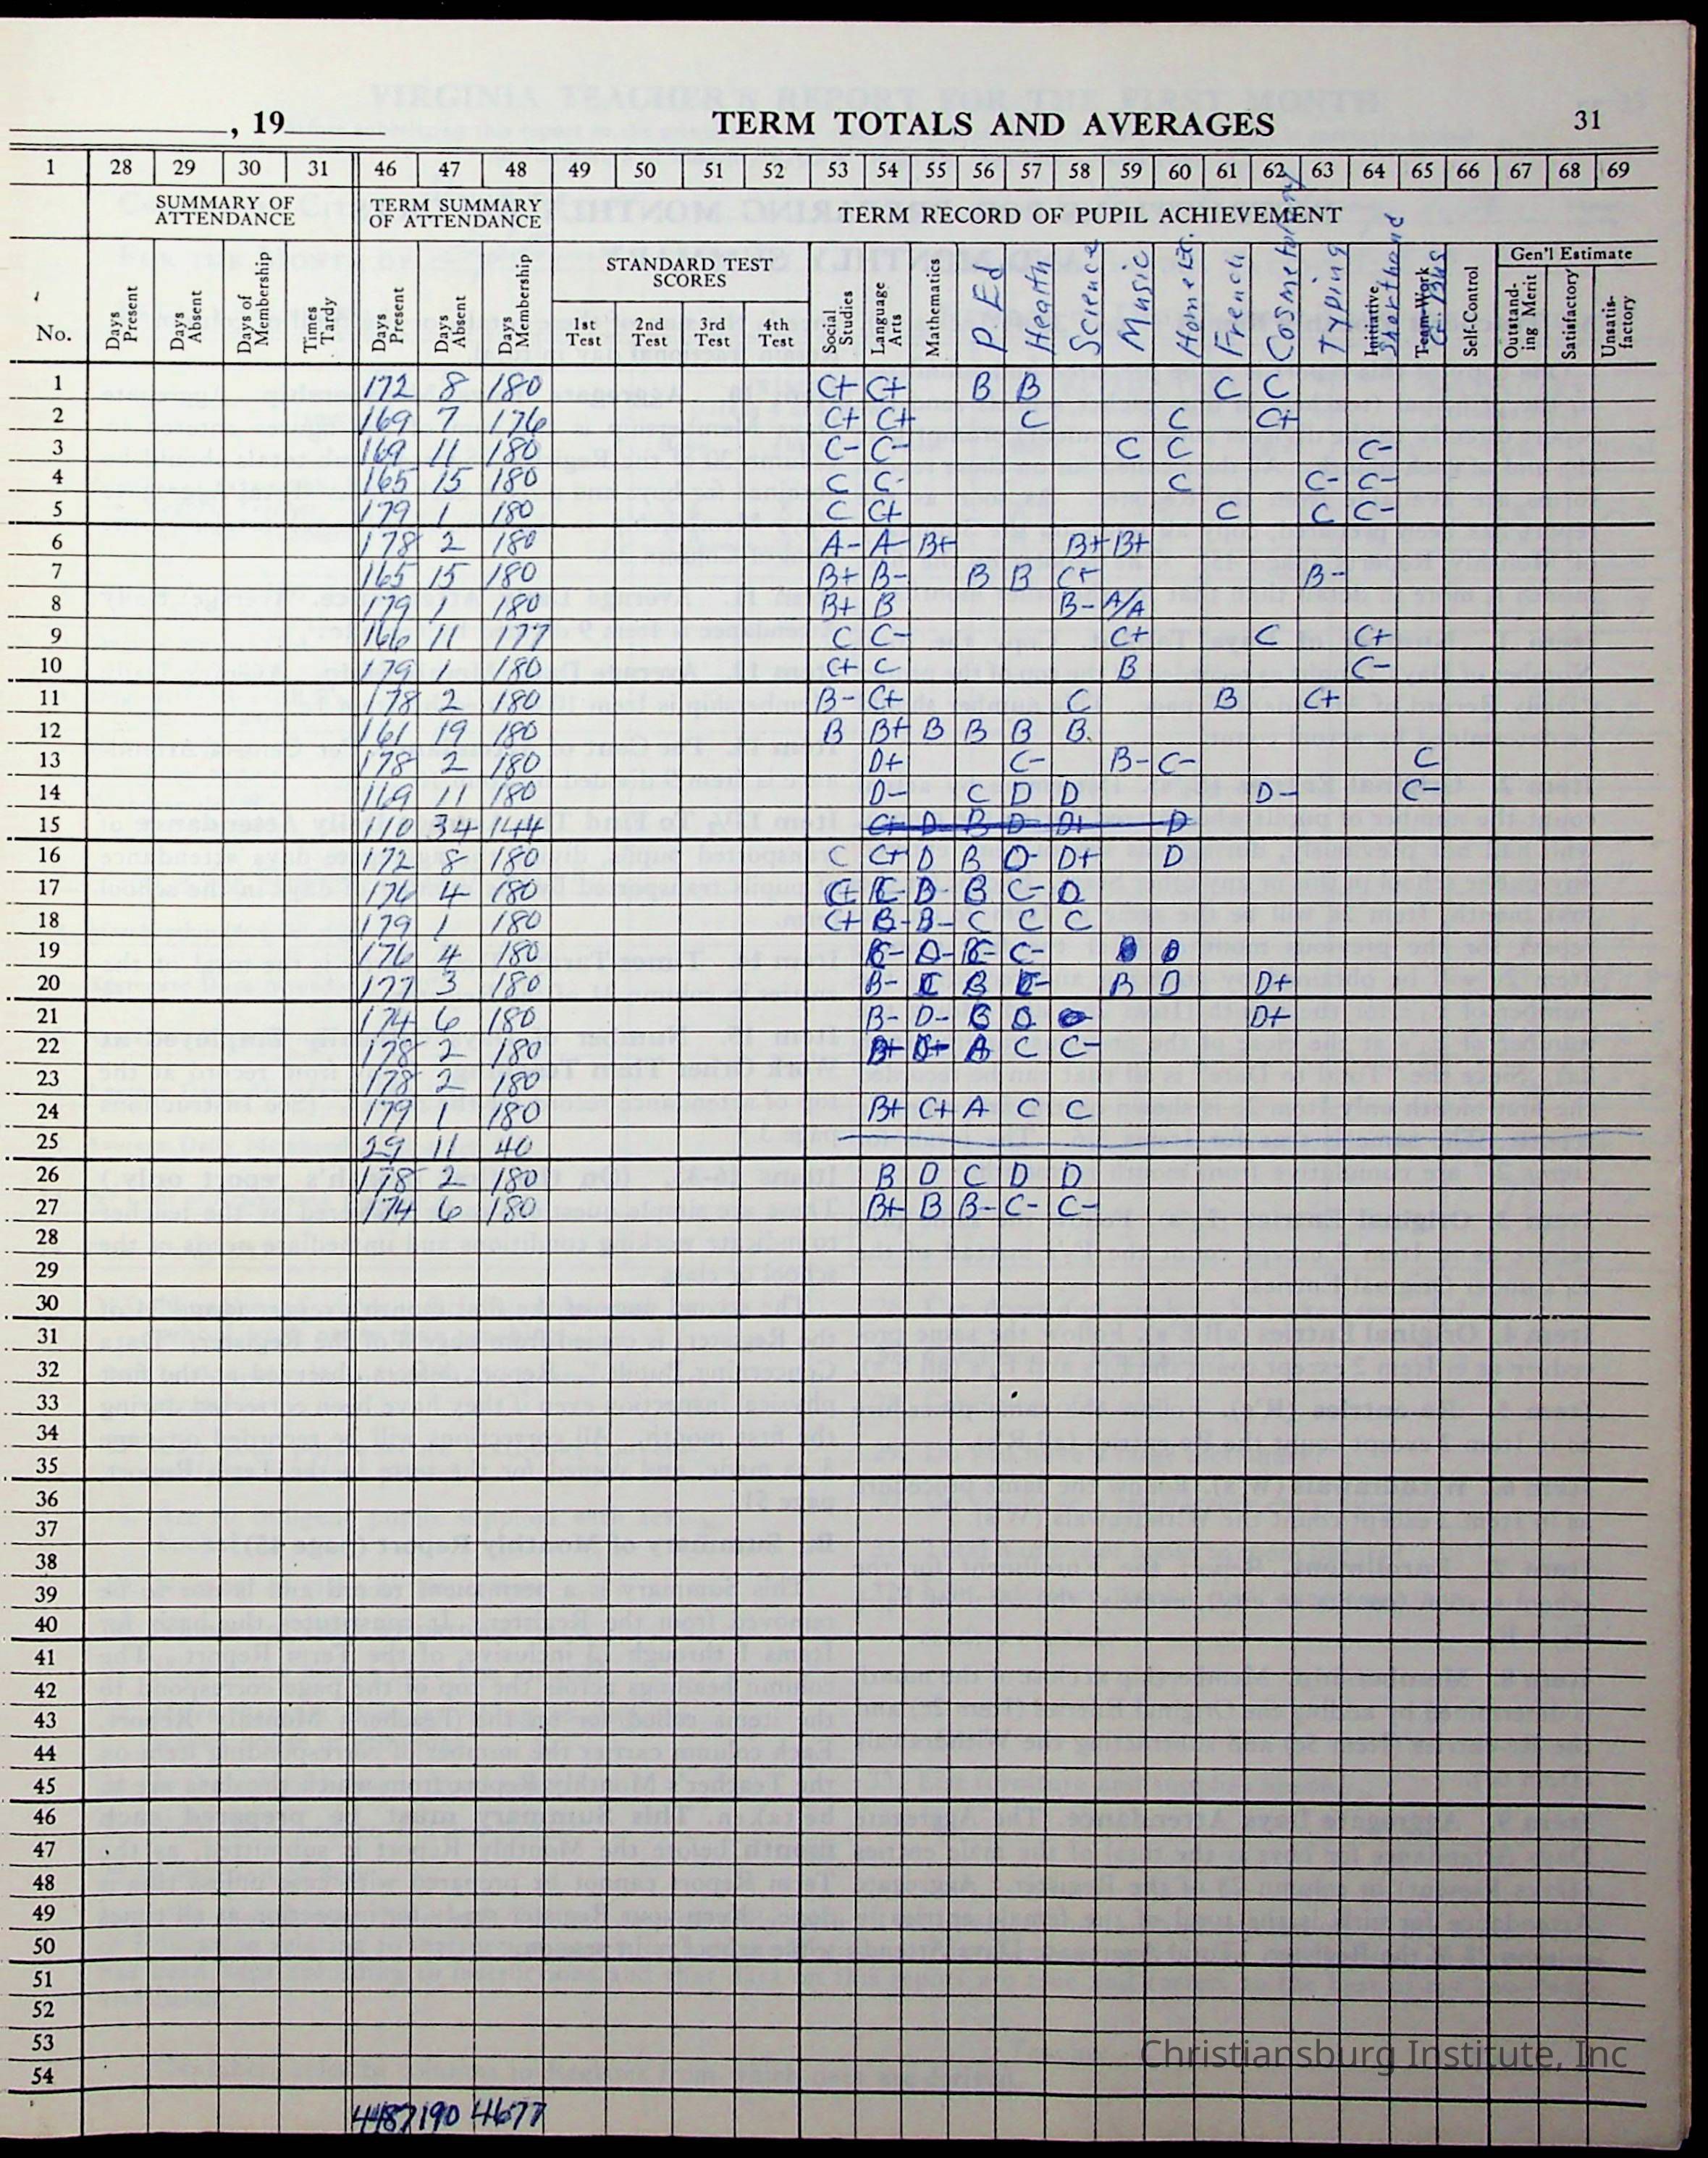 , 19 TERM TOTALS AND AVERAGES 31
1 28 29 30 31 46 47 48 49 50 51 52 53 54 55 56 57 58 59 60 61 62 63 64 65 66 67 68 69
SUMMARY OF ATTENDANCE TERM SUMMARY OF ATTENDANCE TERM RECORD OF PUPIL ACHIEVEMENT
STANDARD TEST SCORES Gen'l Estimate
No. Days Present Days Absent Days of Membership Times Tardy Days Present Days Absent Days Membership 1st Test 2nd Test 3rd Test 4th Test Social Studies Language Arts Mathematics P. Ed Health Science Music Home Ec. French Cosmetology Typing Initiative Shorthand Team-Work Self-Control Outstand-ing Merit Satisfactory Unsatis-factory
1 172 8 180 C+ C+ B B C C
2 169 7 176 C+ C+ C C C+
3 169 11 180 C- C- C C C-
4 165 15 180 C C- C C- C-
5 179 1 180 C C+ C C C-
6 178 2 180 A- A- B+ B+ B+
7 165 15 180 B+ B- B B C+ B-
8 179 1 180 B+ B B- A/A
9 166 11 177 C C- C+ C C+
10 179 1 180 C+ C- B C-
11 178 2 180 B- C+ C B C+
12 161 19 180 B B+ B B B B
13 178 2 180 D+ C- B- C- C
14 169 11 180 D- C D D D- C-
15 110 34 144 C+ D B D- D+ D
16 172 8 180 C C+ D B D- D+ D
17 176 4 180 C+ C- D B C- D
18 179 1 180 C+ B- B- C C C
19 176 4 180 C- D- C- C- D
20 177 3 180 B- C B C- B D D+
21 174 6 180 B- D- B D D+
22 178 2 180 B+ D+ A C C-
23 178 2 180
24 179 1 180 B+ C+ A C C-
25 29 11 40
26 178 2 180 B D C D D
27 174 6 180 B+ B B- C- C-
28
29
30
31
32
33
34
35
36
37
38
39
40
41
42
43
44
45
46
47
48
49
50
51
52
53
54
4487 190 4677
Christiansburg Institute, Inc